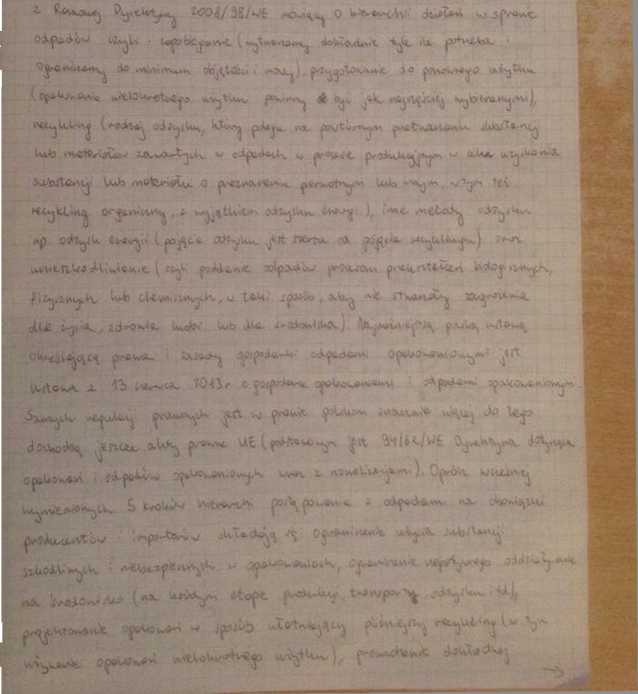 z Ramowej Dyrektywy 2008/98/WE mówiącej o hierarchii działań w sprawie
odpadów czyli: zapobieganie (wytwarzamy dokładnie tyle ile potrzeba i
ograniczamy do minimum objętości i masy), przygotowanie do ponownego użytku
(opakowania wielokrotnego użytku powinny być jak najczęściej wybieranymi),
recykling (rodzaj odzysku, który polega na powtórnym przetwarzaniu substancji
lub materiałów zawartych w odpadach w procesie produkcyjnym w celu uzyskania
substancji lub materiału o przeznaczeniu pierwotnym lub innym, w tym też
recykling organiczny, z wyjątkiem odzysku energii), inne metody odzysku
np. odzysk energii (pojęcie odzysku jest szersze od pojęcia recyklingu) oraz
unieszkodliwienie (czyli poddanie odpadów procesom przekształceń biologicznych,
fizycznych lub chemicznych, w taki sposób, aby nie stwarzały zagrożenia
dla życia, zdrowia ludzi lub dla środowiska). Najważniejszą polską ustawą
określającą prawa i zasady gospodarki odpadami opakowaniowymi jest
Ustawa z 13 czerwca 2013r o gospodarce opakowaniami i odpadami opakowaniowymi.
Samych regulacji prawnych jest w prawie polskim znacznie więcej do tego
dochodzą jeszcze akty prawne UE (podstawowym jest 94/62/WE Dyrektywa dotycząca
opakowań i odpadów opakowaniowych wraz z nowelizacjami). Oprócz wcześniej
wymienionych 5 kroków hierarchii postępowania z odpadami na obowiązki
producentów i importerów składają się ograniczenie użycia substancji
szkodliwych i niebezpiecznych w opakowaniach, ograniczenie negatywnego oddziaływania
na środowisko (na każdym etapie produkcji, transportu, odzysku itd),
projektowanie opakowań w sposób ułatwiający późniejszy recykling (w tym
używanie opakowań wielokrotnego użytku), prowadzenie dokładnej